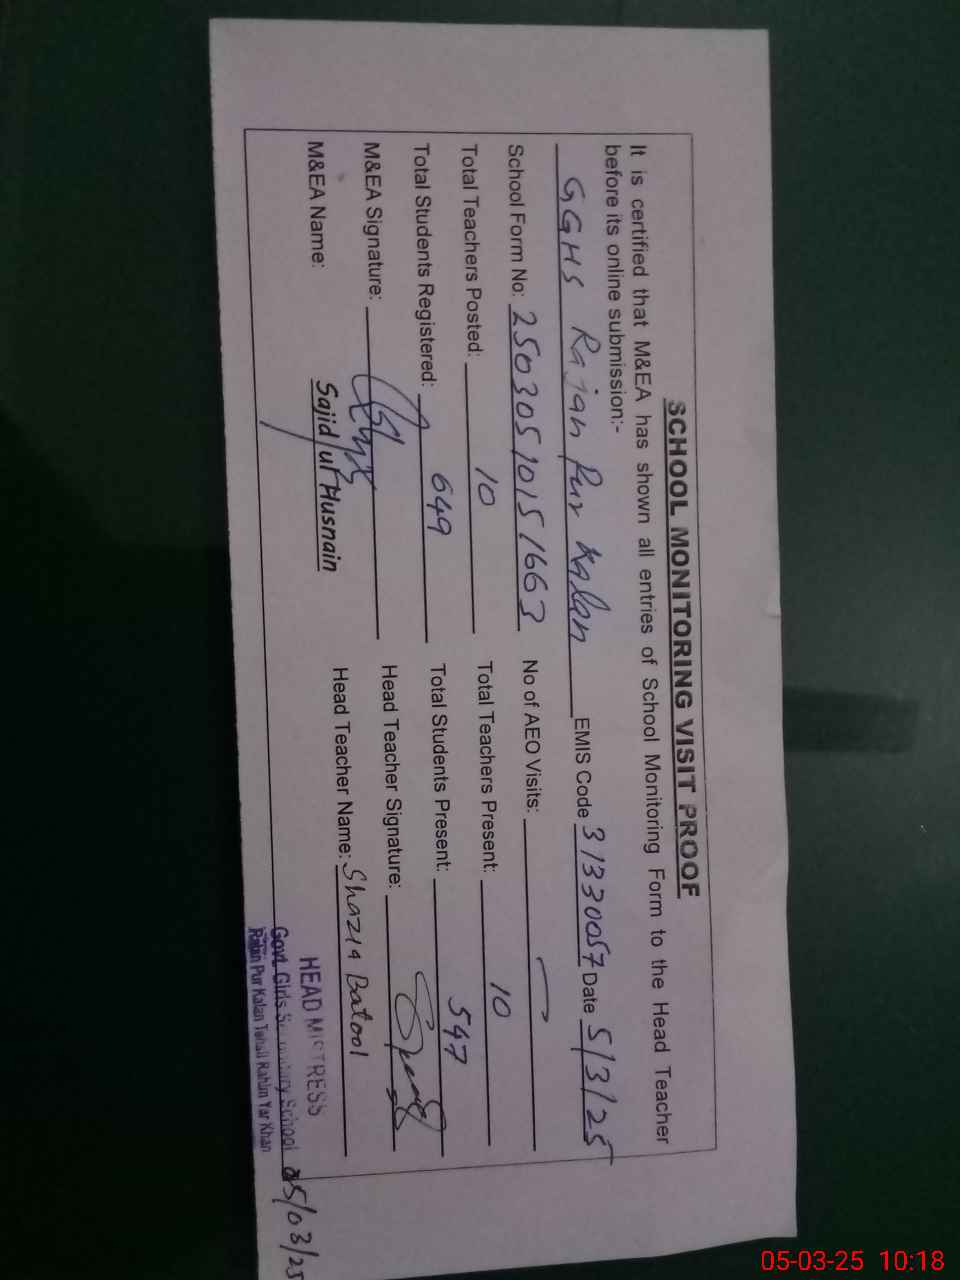 SCHOOL MONITORING VISIT PROOF
It is certified that M&EA has shown all entries of School Monitoring Form to the Head Teacher
before its online submission:-
GGHS Rajan Pur Kalan EMIS Code 31330057 Date 5/3/25
School Form No: 25030510151663 No of AEO Visits:
Total Teachers Posted: 10 Total Teachers Present: 10
Total Students Registered: 649 Total Students Present: 547
M&EA Signature: Head Teacher Signature:
M&EA Name: Sajid ul Husnain Head Teacher Name: Shazia Batool
HEAD MISTRESS
Govt. Girls Secondary School 05/03/25
Rajan Pur Kalan Tehsil Rahim Yar Khan
05-03-25 10:18